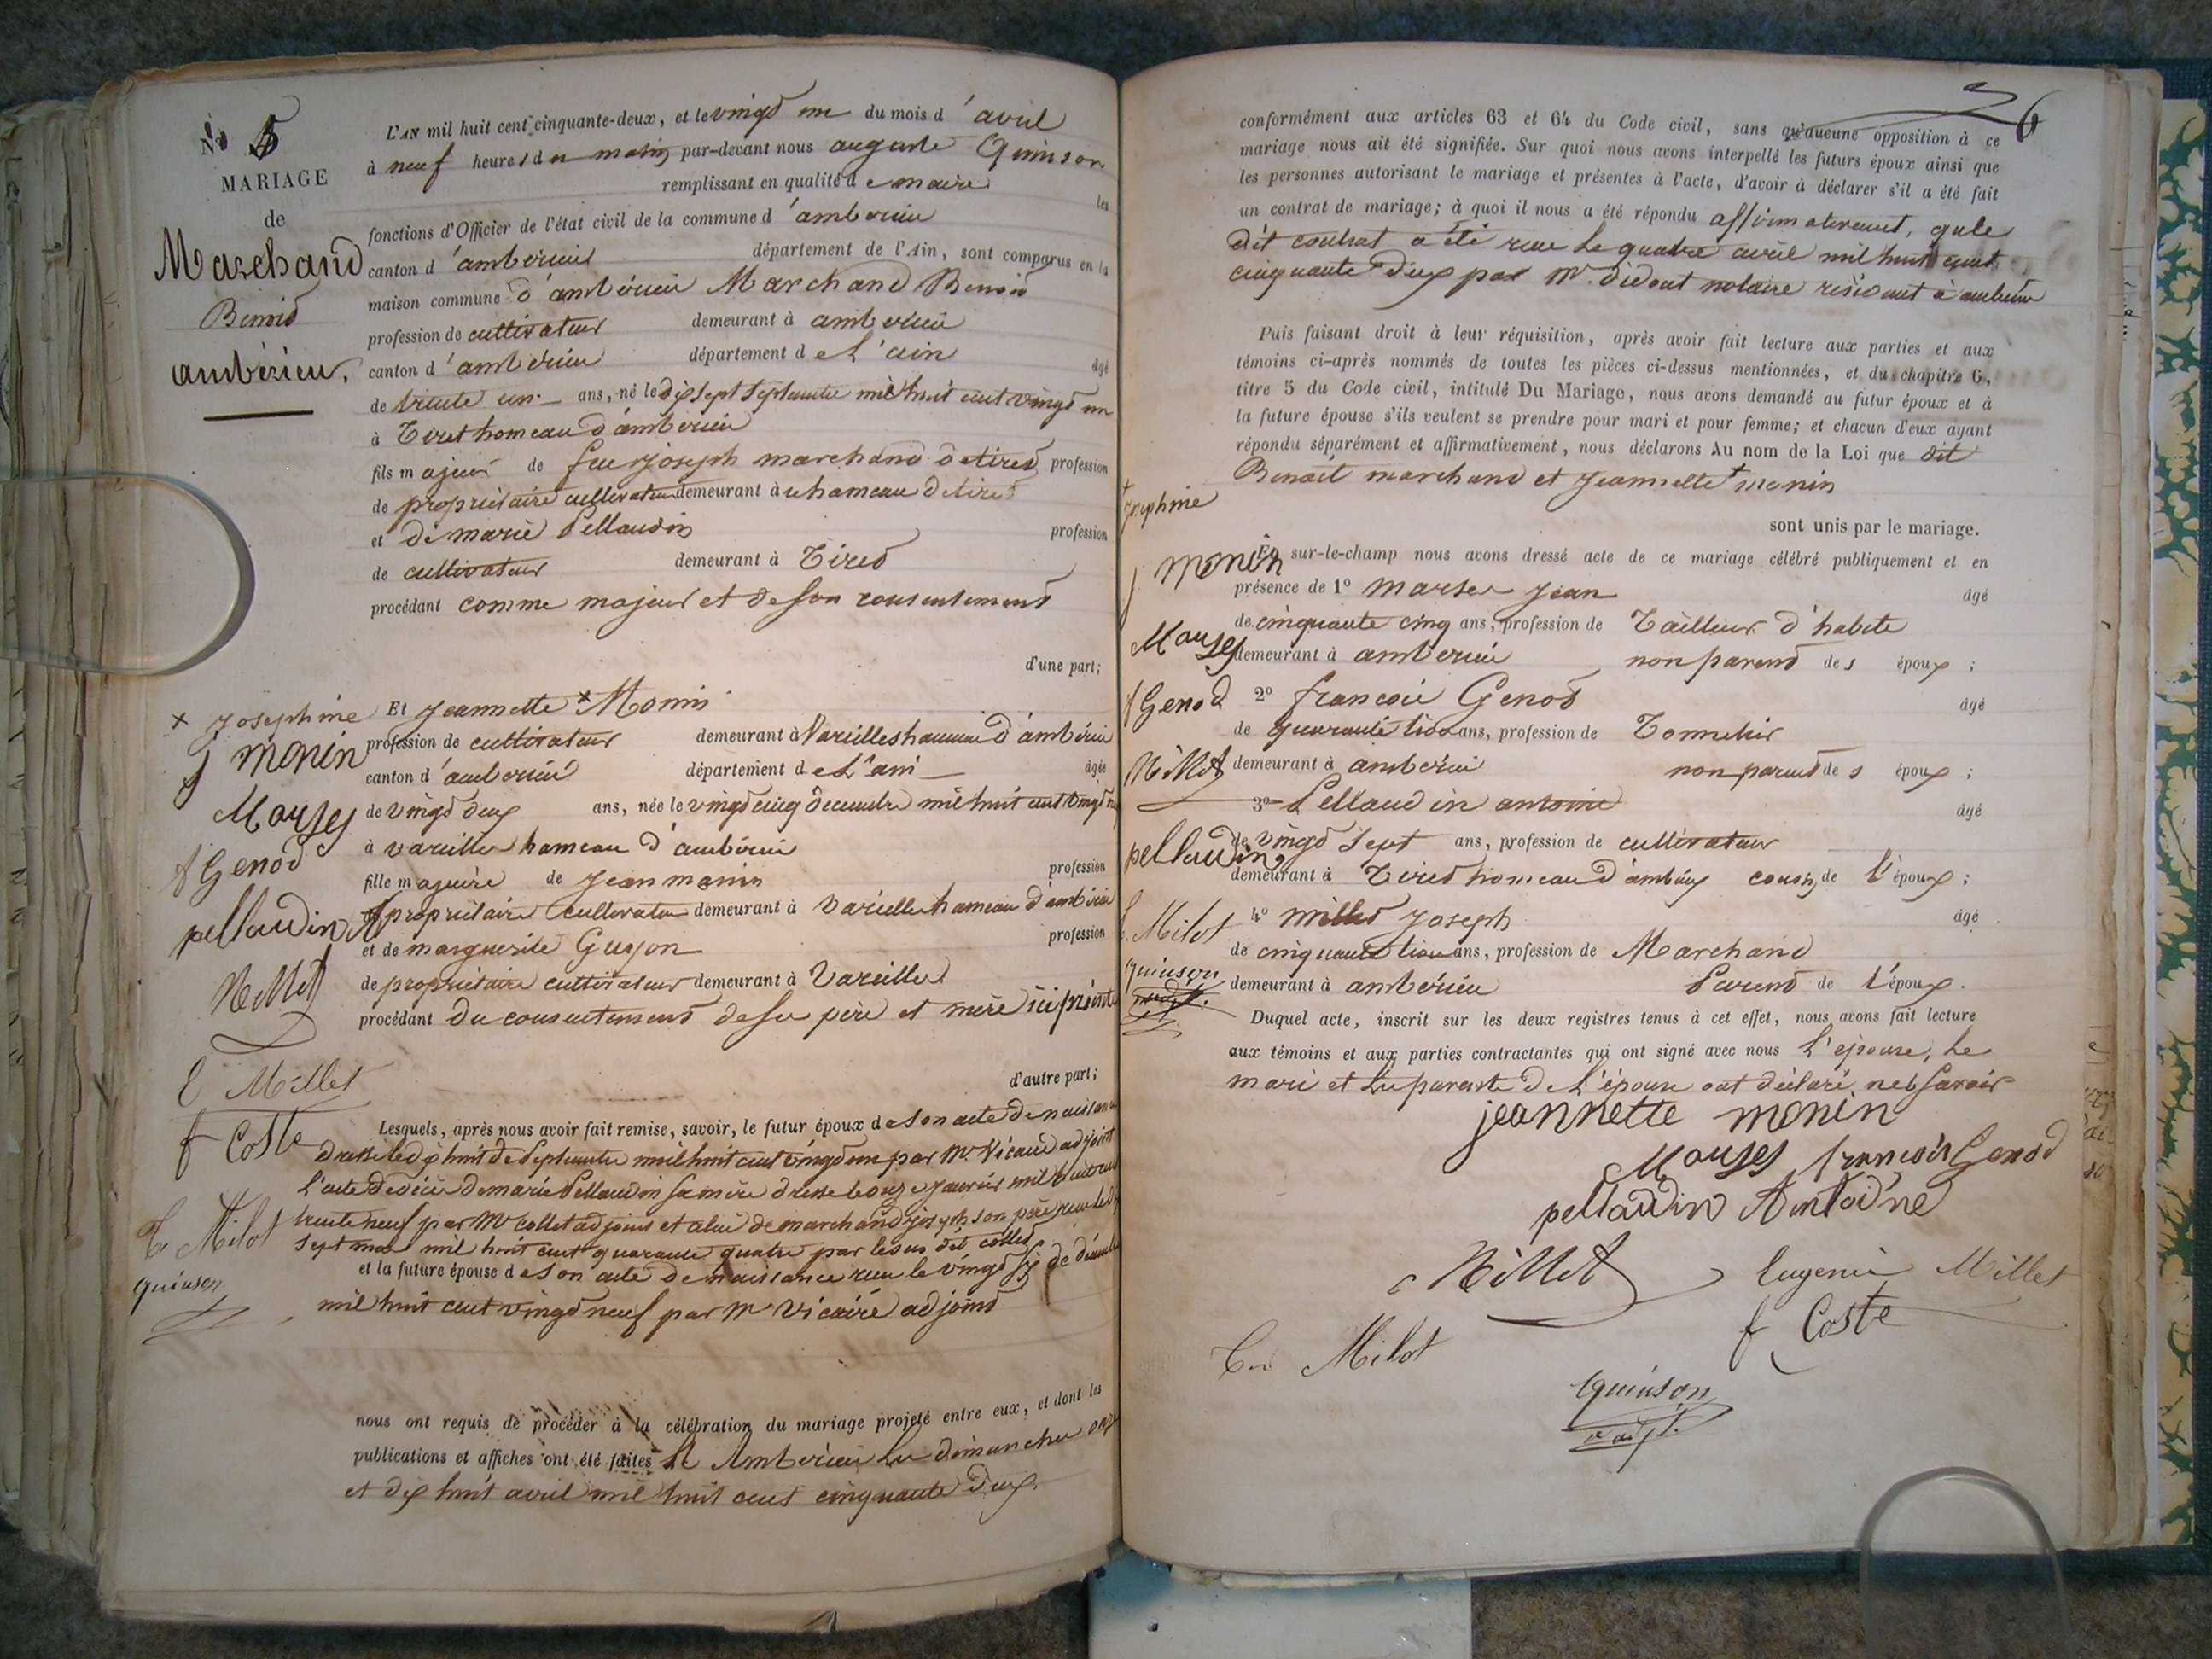 No 5
MARIAGE
de
Marchand
Benoid
ambérieu.
L'AN mil huit cent cinquante-deux, et le vingd un du mois d'avril
à neuf heures du matin par-devant nous auguste Quinson
remplissant en qualité de maire les
fonctions d'Officier de l'état civil de la commune d'ambérieu
canton d'ambérieu département de l'Ain, sont comparus en la
maison commune d'ambérieu Marchand Benoid
profession de cultivateur demeurant à ambérieu
canton d'ambérieu département de L'ain âgé
de trente un ans, né le dix sept septembre mil huit cent vingd un
à Tiret hameau d'ambérieu
fils majeur de feu joseph marchand de tired profession
de propriétaire cultivateur demeurant à u hameau de tired
et de marie Pellaudin profession
de cultivateur demeurant à Tired
procédant comme majeur et de son consentement
d'une part;
x josephine
j monin
Mouses
f Genod
pellaudin A
Millet
E Millet
f Coste
C Milot
quinson
Et jeannette x Monin
profession de cultivateur demeurant à Vareilles hameau d'ambérieu
canton d'ambérieu département de L'ain âgée
de vingd deux ans, née le vingd cinq decembre mil huit cent vingd
à vareilles hameau d'ambérieu
fille majeure de jean monin profession
de propriétaire cultivateur demeurant à vareilles hameau d'ambérieu
et de marguerite Guyon profession
de propriétaire cultivateur demeurant à Vareilles
procédant du consentement de ses père et mère ici présents
d'autre part;
Lesquels, après nous avoir fait remise, savoir, le futur époux de son acte de naissance
dressé le dix huit de septembre mil huit cent vingd un par Mr Vicaire adjoint
l'acte de décès de marie Pellaudin sa mère dressé le onze janvier mil huit cent
trente neuf par Mr Collet adjoint et celui de marchand joseph son père reçu le
sept mars mil huit cent quarante quatre par le sus dit collet
et la future épouse de son acte de naissance reçu le vingd six de décembre
mil huit cent vingd neuf par Mr Vicaire adjoind
nous ont requis de procéder à la célébration du mariage projeté entre eux, et dont les
publications et affiches ont été faites à Ambérieu les dimanches onze
et dix huit avril mil huit cent cinquante deux.
6
conformément aux articles 63 et 64 du Code civil, sans qu'aucune opposition à ce
mariage nous ait été signifiée. Sur quoi nous avons interpellé les futurs époux ainsi que
les personnes autorisant le mariage et présentes à l'acte, d'avoir à déclarer s'il a été fait
un contrat de mariage; à quoi il nous a été répondu affirmativement, que le
dit contrat a été reçu le quatre avril mil huit cent
cinquante deux par Mr. didout notaire résidant à ambérieu
Puis faisant droit à leur réquisition, après avoir fait lecture aux parties et aux
témoins ci-après nommés de toutes les pièces ci-dessus mentionnées, et du chapitre 6,
titre 5 du Code civil, intitulé Du Mariage, nous avons demandé au futur époux et à
la future épouse s'ils veulent se prendre pour mari et pour femme; et chacun d'eux ayant
répondu séparément et affirmativement, nous déclarons Au nom de la Loi que dit
Benoit marchand et jeannette + monin
sont unis par le mariage.
+ josephine
j monin
Mouses
f Genod
Millet
pellaudin
E. Milot
quinson
Et sur-le-champ nous avons dressé acte de ce mariage célébré publiquement et en
présence de 1º jean âgé
de cinquante cinq ans, profession de Tailleur d'habits
demeurant à ambérieu non parend des époux;
2º francois Genod âgé
de quarante trois ans, profession de Tonnelier
demeurant à ambérieu non parend des époux;
3º Pellaudin antoine âgé
de vingd sept ans, profession de cultivateur
demeurant à Tired hameau d'ambérieu cousin de l'époux;
4º milled joseph âgé
de cinquante trois ans, profession de Marchand
demeurant à ambérieu Parend de l'époux.
Duquel acte, inscrit sur les deux registres tenus à cet effet, nous avons fait lecture
aux témoins et aux parties contractantes qui ont signé avec nous L'épouse, Le
mari et les parents de L'épouse ont déclaré ne savoir
jeannette monin
Mouses françois Genod
pellaudin Antoine
Millet Eugenie Millet
f Coste
Milot
Quinson